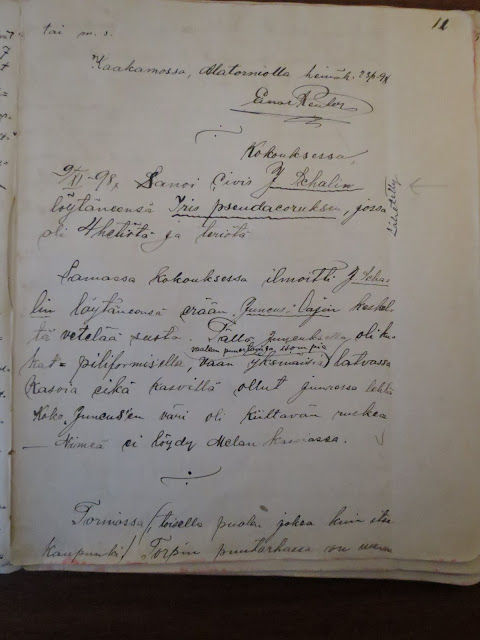 12
tai m. s.
Kaakamossa, Alatorniolla heinäk. 23 p. -98
Einar Reuter
Kokouksessa,
9/II -98, Sanoi Civis J Schalin
löytäneensä Iris pseudacoruksen, jossa
oli 4 hetiöttä ja teriötä
Lähetetty
Samassa kokouksessa ilmoitti J Scha-
lin löytäneensä erään Juncus-lajin keskel-
tä vetelää suota. Tällä Juncuksella oli ku-
kat = piliformisella, vaan yksinäisiä latvassa
vaalean punertavia, isompia
Kasvia eikä kasvilla ollut juuressa lehti
Koko Juncus'en väri oli kiiltävän ruskea
— Nimeä ei löydy Melan kasviossa.
Torniossa (toisella puolen jokea kuin itse
kaupunki! Torpin puutarhassa on